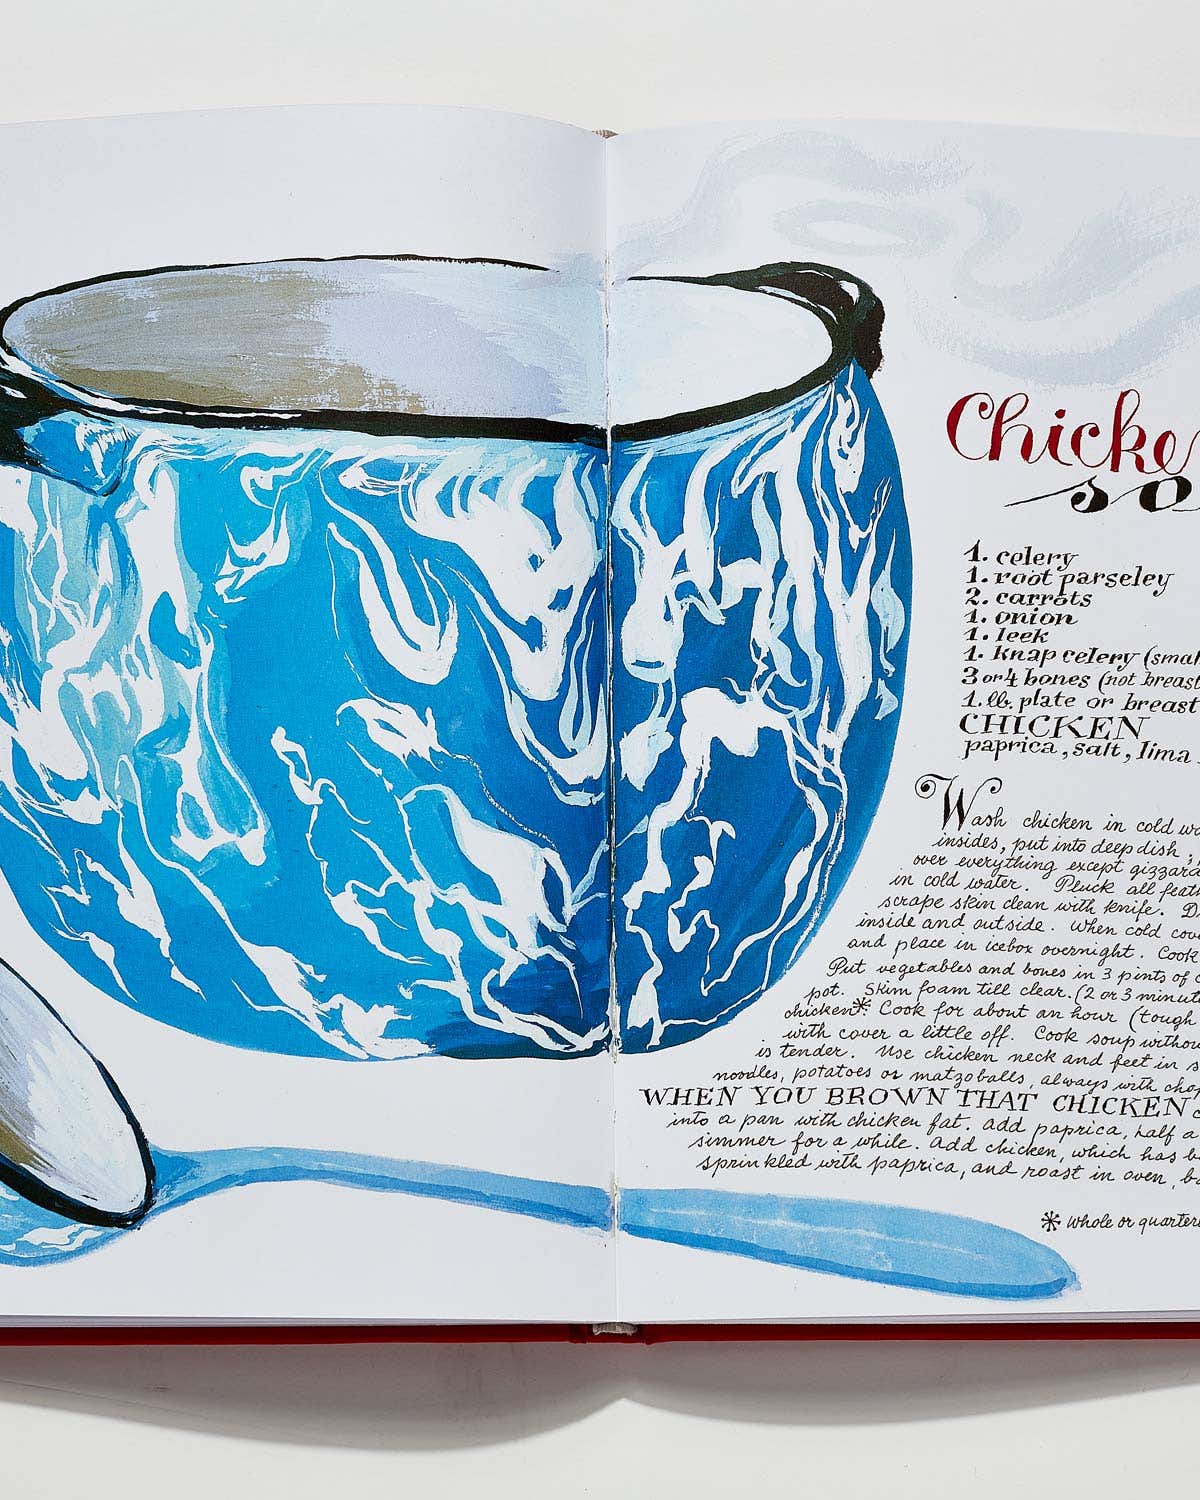 Chicke
so
1. celery
1. root parseley
2. carrots
1. onion
1. leek
1. knap celery (smal
3 or 4 bones (not breast
1. lb. plate or breast
CHICKEN
paprica, salt, lima
Wash chicken in cold wa
insides, put into deep dish,
over everything except gizzard
in cold water. Pluck all feath
scrape skin clean with knife. D
inside and outside. When cold cov
and place in icebox overnight. Cook
Put vegetables and bones in 3 pints of c
pot. Skim foam till clear. (2 or 3 minut
chicken*. Cook for about an hour (tough
with cover a little off. Cook soup withou
is tender. Use chicken neck and feet in s
noodles, potatoes or matzoballs, always with chop
WHEN YOU BROWN THAT CHICKEN c
into a pan with chicken fat. add paprica, half a
simmer for a while. add chicken, which has b
sprinkled with paprica, and roast in oven, ba
* whole or quartere